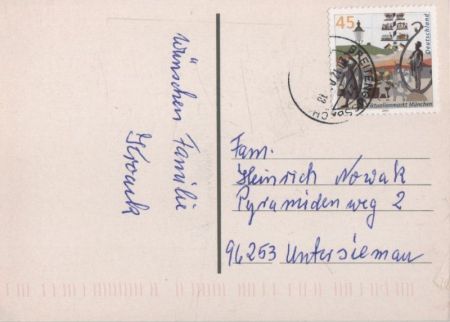 wünschen Familie
Kronk
Fam.
Heinrich Nowak
Pyramidenweg 2
96253 Untersiemau
45
Deutschland
Viktualienmarkt München